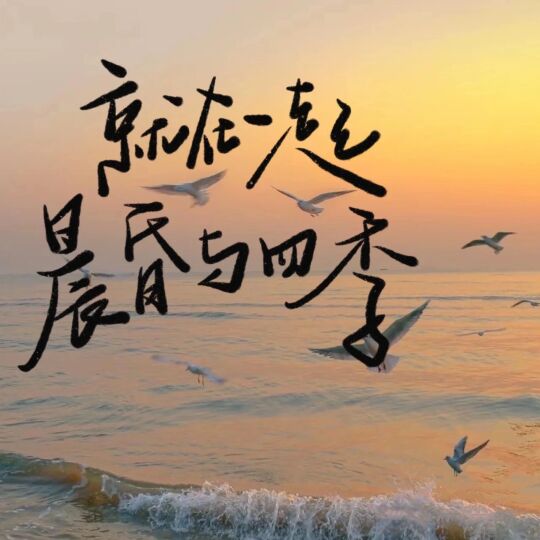 就在一起
晨昏与四季